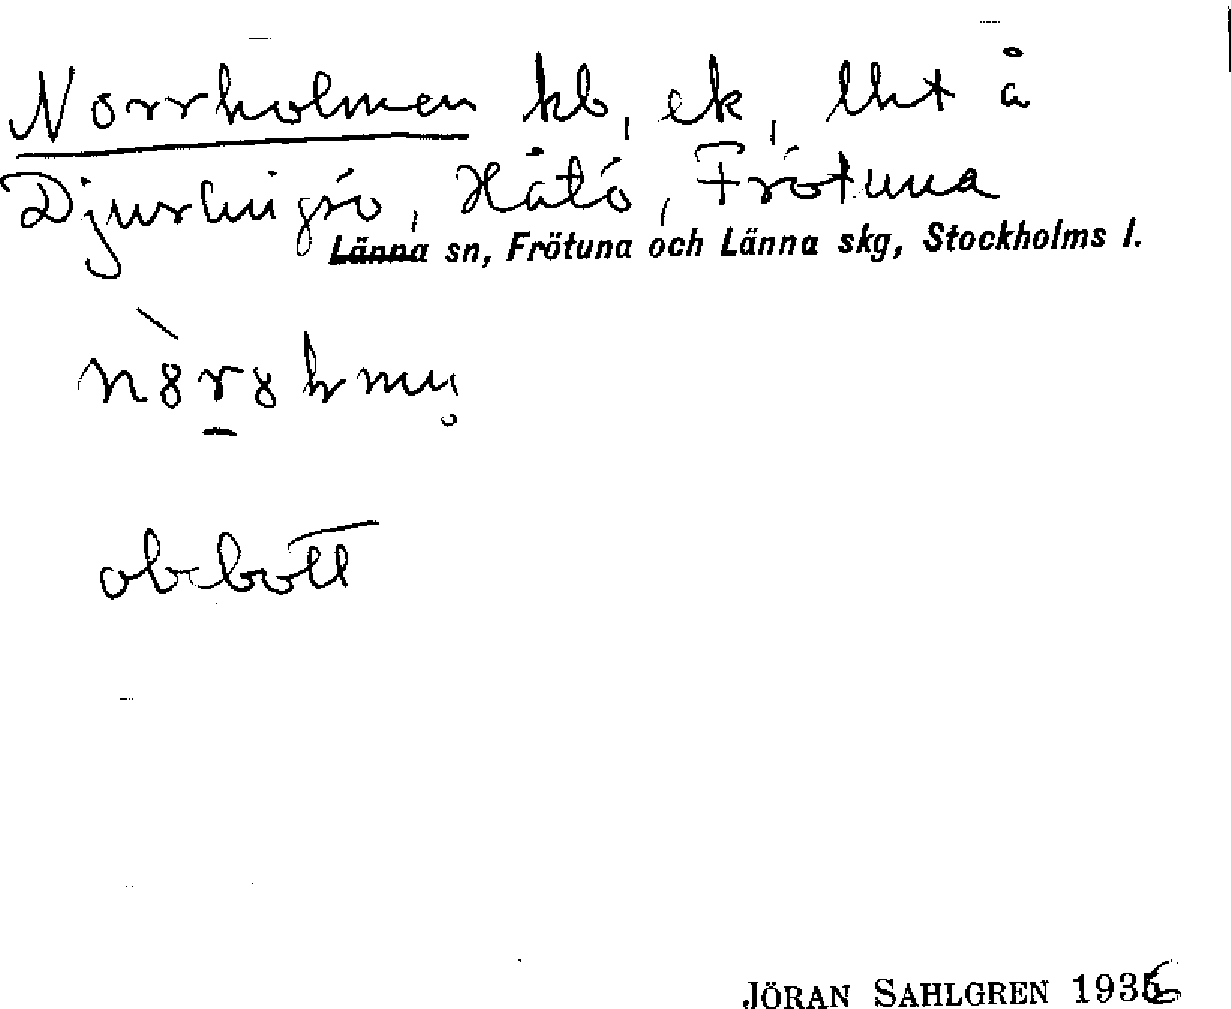 Norrholmen kb, ek, lht å
Djurhingsö, Håtö, Frötuna
Länna sn, Frötuna och Länna skg, Stockholms l.
obebott
JÖRAN SAHLGREN 1936